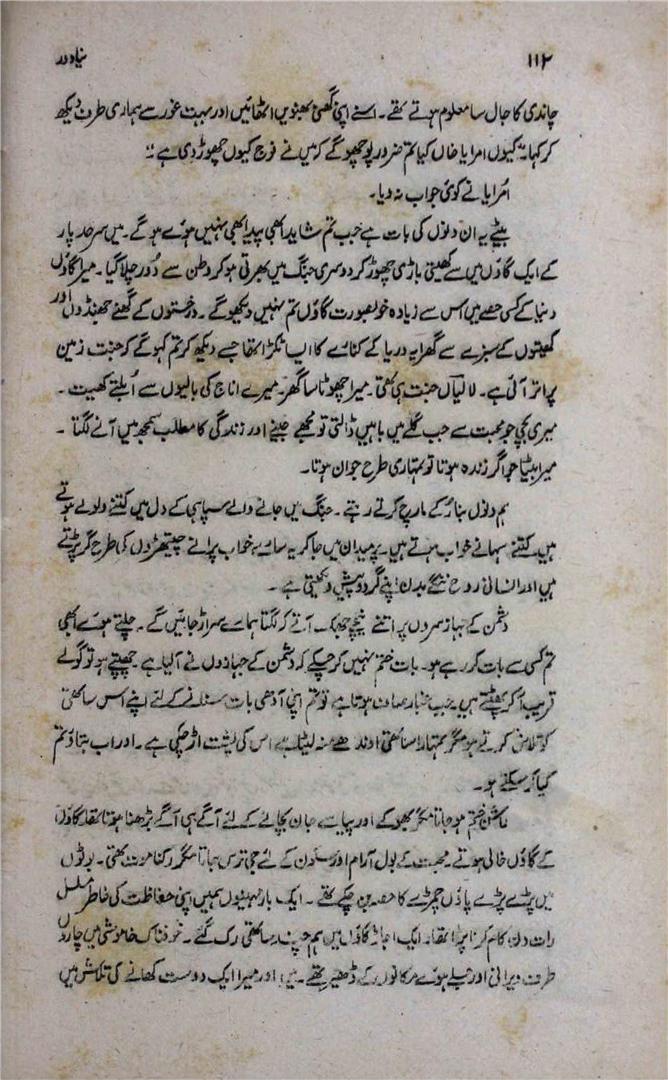 ۱۱۲ نیا دور
چاندی کا جال سا معلوم ہوتے تھے۔ اسنے اپنی گھنی بھنویں اٹھائیں اور بہت غور سے ہماری طرف دیکھ
کر کہا "کیوں امرایا خاں کیا تم ضرور پوچھوگے کہ میں نے فوج کیوں چھوڑ دی ہے"؟
امرایا نے کوئی جواب نہ دیا۔
بیٹے یہ ان دنوں کی بات ہے جب تم شاید ابھی پیدا بھی نہیں ہوئے ہو گے۔ میں سرحد پار
کے ایک گاؤں میں سے کھیتی باڑی چھوڑ کر دوسری جنگ میں بھرتی ہو کر وطن سے دُور چلا گیا۔ میرا گاؤں
دنیا کے کسی حصے میں اس سے زیادہ خوبصورت گاؤں تم نہیں دیکھو گے۔ درختوں کے گھنے جھنڈوں اور
کھیتوں کے سبزے سے گھرا یہ دریا کے کنارے کا ایسا ٹکڑا تھا جسے دیکھ کر تم کہو گے کہ جنت زمین
پر اتر آئی ہے۔ لالیاں جنت ہی تھی۔ میرا چھوٹا سا گھر۔ میرے اناج کی بالیوں سے اُبلتے کھیت۔
میری بچی جو محبت سے جب گلے میں باہیں ڈالتی تو مجھے جینے اور زندگی کا مطلب سمجھ میں آنے لگتا۔
میرا بیٹا جو اگر زندہ ہوتا تو تمہاری طرح جوان ہوتا۔
ہم دنوں مارچ کرتے رہتے۔ جنگ میں جانے والے سپاہی کے دل میں کتنے ولولے ہوتے
ہیں۔ کتنے سہانے خواب ہوتے ہیں۔ پر میدان میں جا کر یہ سارے خواب پرانے چیتھڑوں کی طرح گر پڑتے
ہیں اور انسانی روح ننگے بدن اپنے گرد و پیش دیکھتی ہے۔
دشمن کے جہاز سروں پر اتنے نیچے جھک آتے کہ لگتا ہمارے سر اڑ جائیں گے۔ چلتے ہوئے ابھی
تم کسی سے بات کر رہے ہو۔ بات ختم نہیں کر چکے کہ دشمن کے جہازوں نے آلیا ہے چھپتے ہو تو گولے
قریب آ کر پھٹتے ہیں۔ جب غبار صاف ہوتا ہے تو تم اپنی آدھی بات سنانے کے لئے اپنے اس ساتھی
کو تلاش کرتے ہو مگر تمہارا ساتھی اوندھے منہ لیٹا ہے اس کی پشت اڑ چکی ہے۔ اور اب بتاؤ تم
کیا کر سکتے ہو۔
راشن ختم ہو جاتا مگر بھوکے اور پیاسے جان بچانے کے لئے آگے ہی آگے بڑھنا ہوتا تھا۔ گاؤں
کے گاؤں خالی ہوتے۔ محبت کے بول آرام اور سکون کے لئے جی ترس جاتا مگر رکنا موت تھی۔ بوٹوں
میں پڑے پڑے پاؤں چمڑے کا حصہ بن چکے تھے۔ ایک بار مہینوں ہمیں اپنی حفاظت کی خاطر مسلسل
رات دن کام کرنا پڑا تھا۔ ایک اجاڑ گاؤں میں ہم چند ساتھی رک گئے۔ خوفناک خاموشی میں چاروں
طرف ویرانی اور جلے ہوئے مکانوں کے ڈھیر تھے۔ میں اور میرا ایک دوست کھانے کی تلاش میں